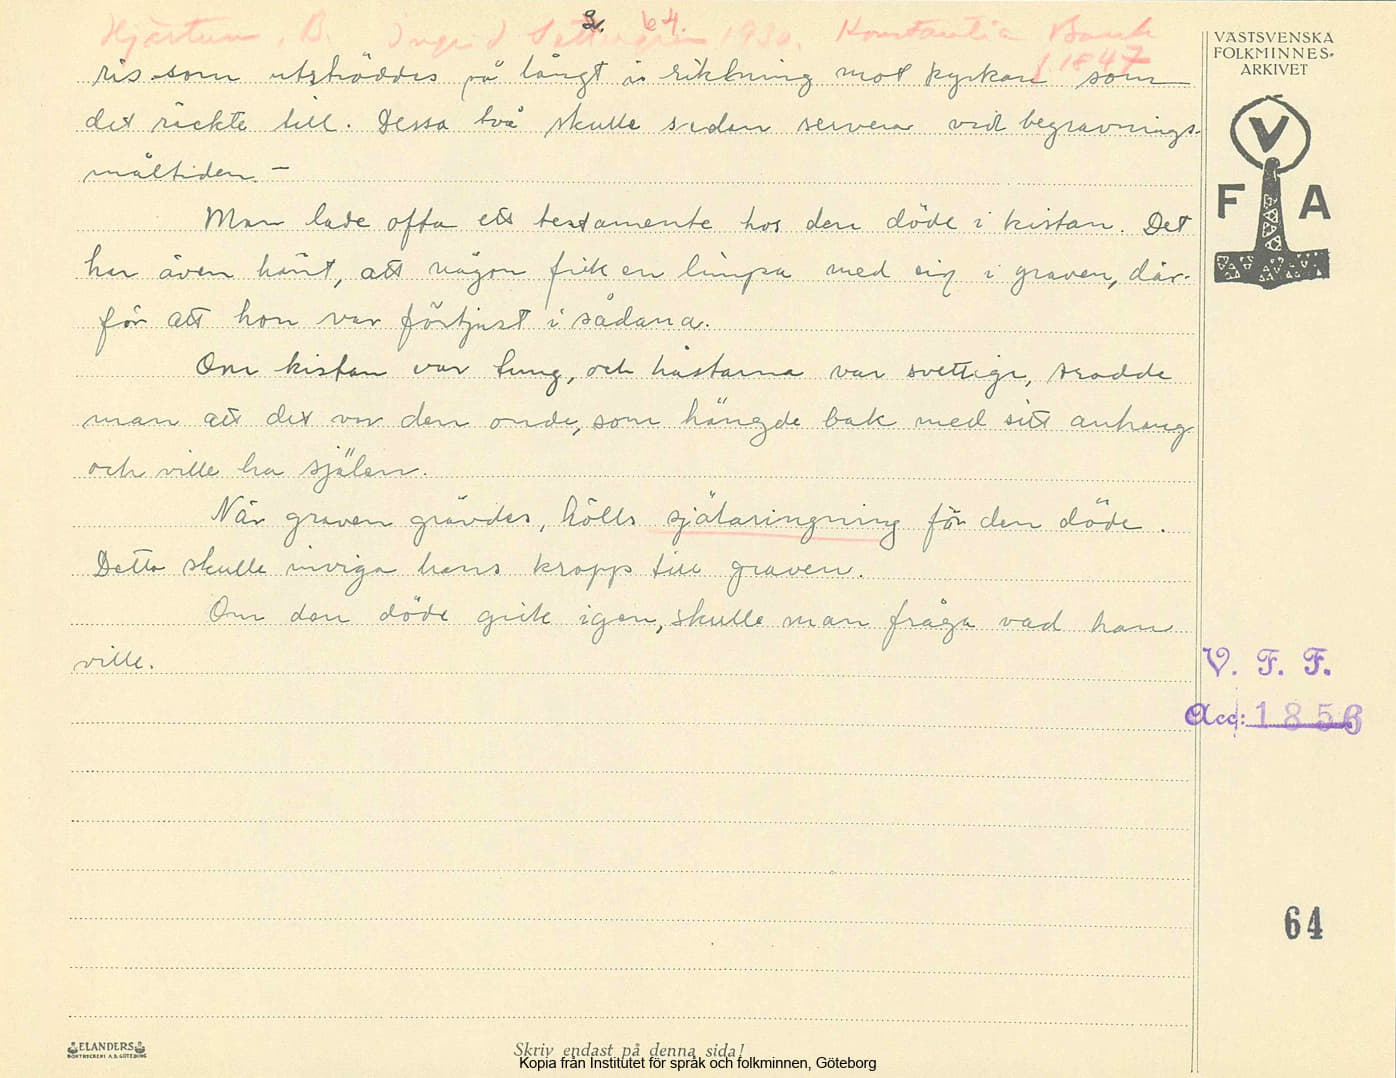 2. 64.
Hjärtum, B. Ingrid 1930. Konstantia Bank
f. 1847
ris som utströddes så långt i riktning mot kyrkan som
det räckte till. Dessa två skulle sedan servera vid begravnings-
måltiden. –
Man lade ofta ett testamente hos den döde i kistan. Det
har även hänt, att någon fick en limpa med sig i graven, där-
för att hon var förtjust i sådana.
Om kistan var tung, och hästarna var svettiga, trodde
man att det var den onde, som hängde bak med sitt anhang
och ville ha själen.
När graven grävdes, hölls själaringning för den döde.
Detta skulle inviga hans kropp till graven.
Om den döde gick igen, skulle man fråga vad han
ville.
VÄSTSVENSKA
FOLKMINNES-
ARKIVET
V
F A
V. F. F.
Acc: 1856
64
ELANDERS
BOKTRYCKERI A.B. GÖTEBORG
Skriv endast på denna sida!
Kopia från Institutet för språk och folkminnen, Göteborg